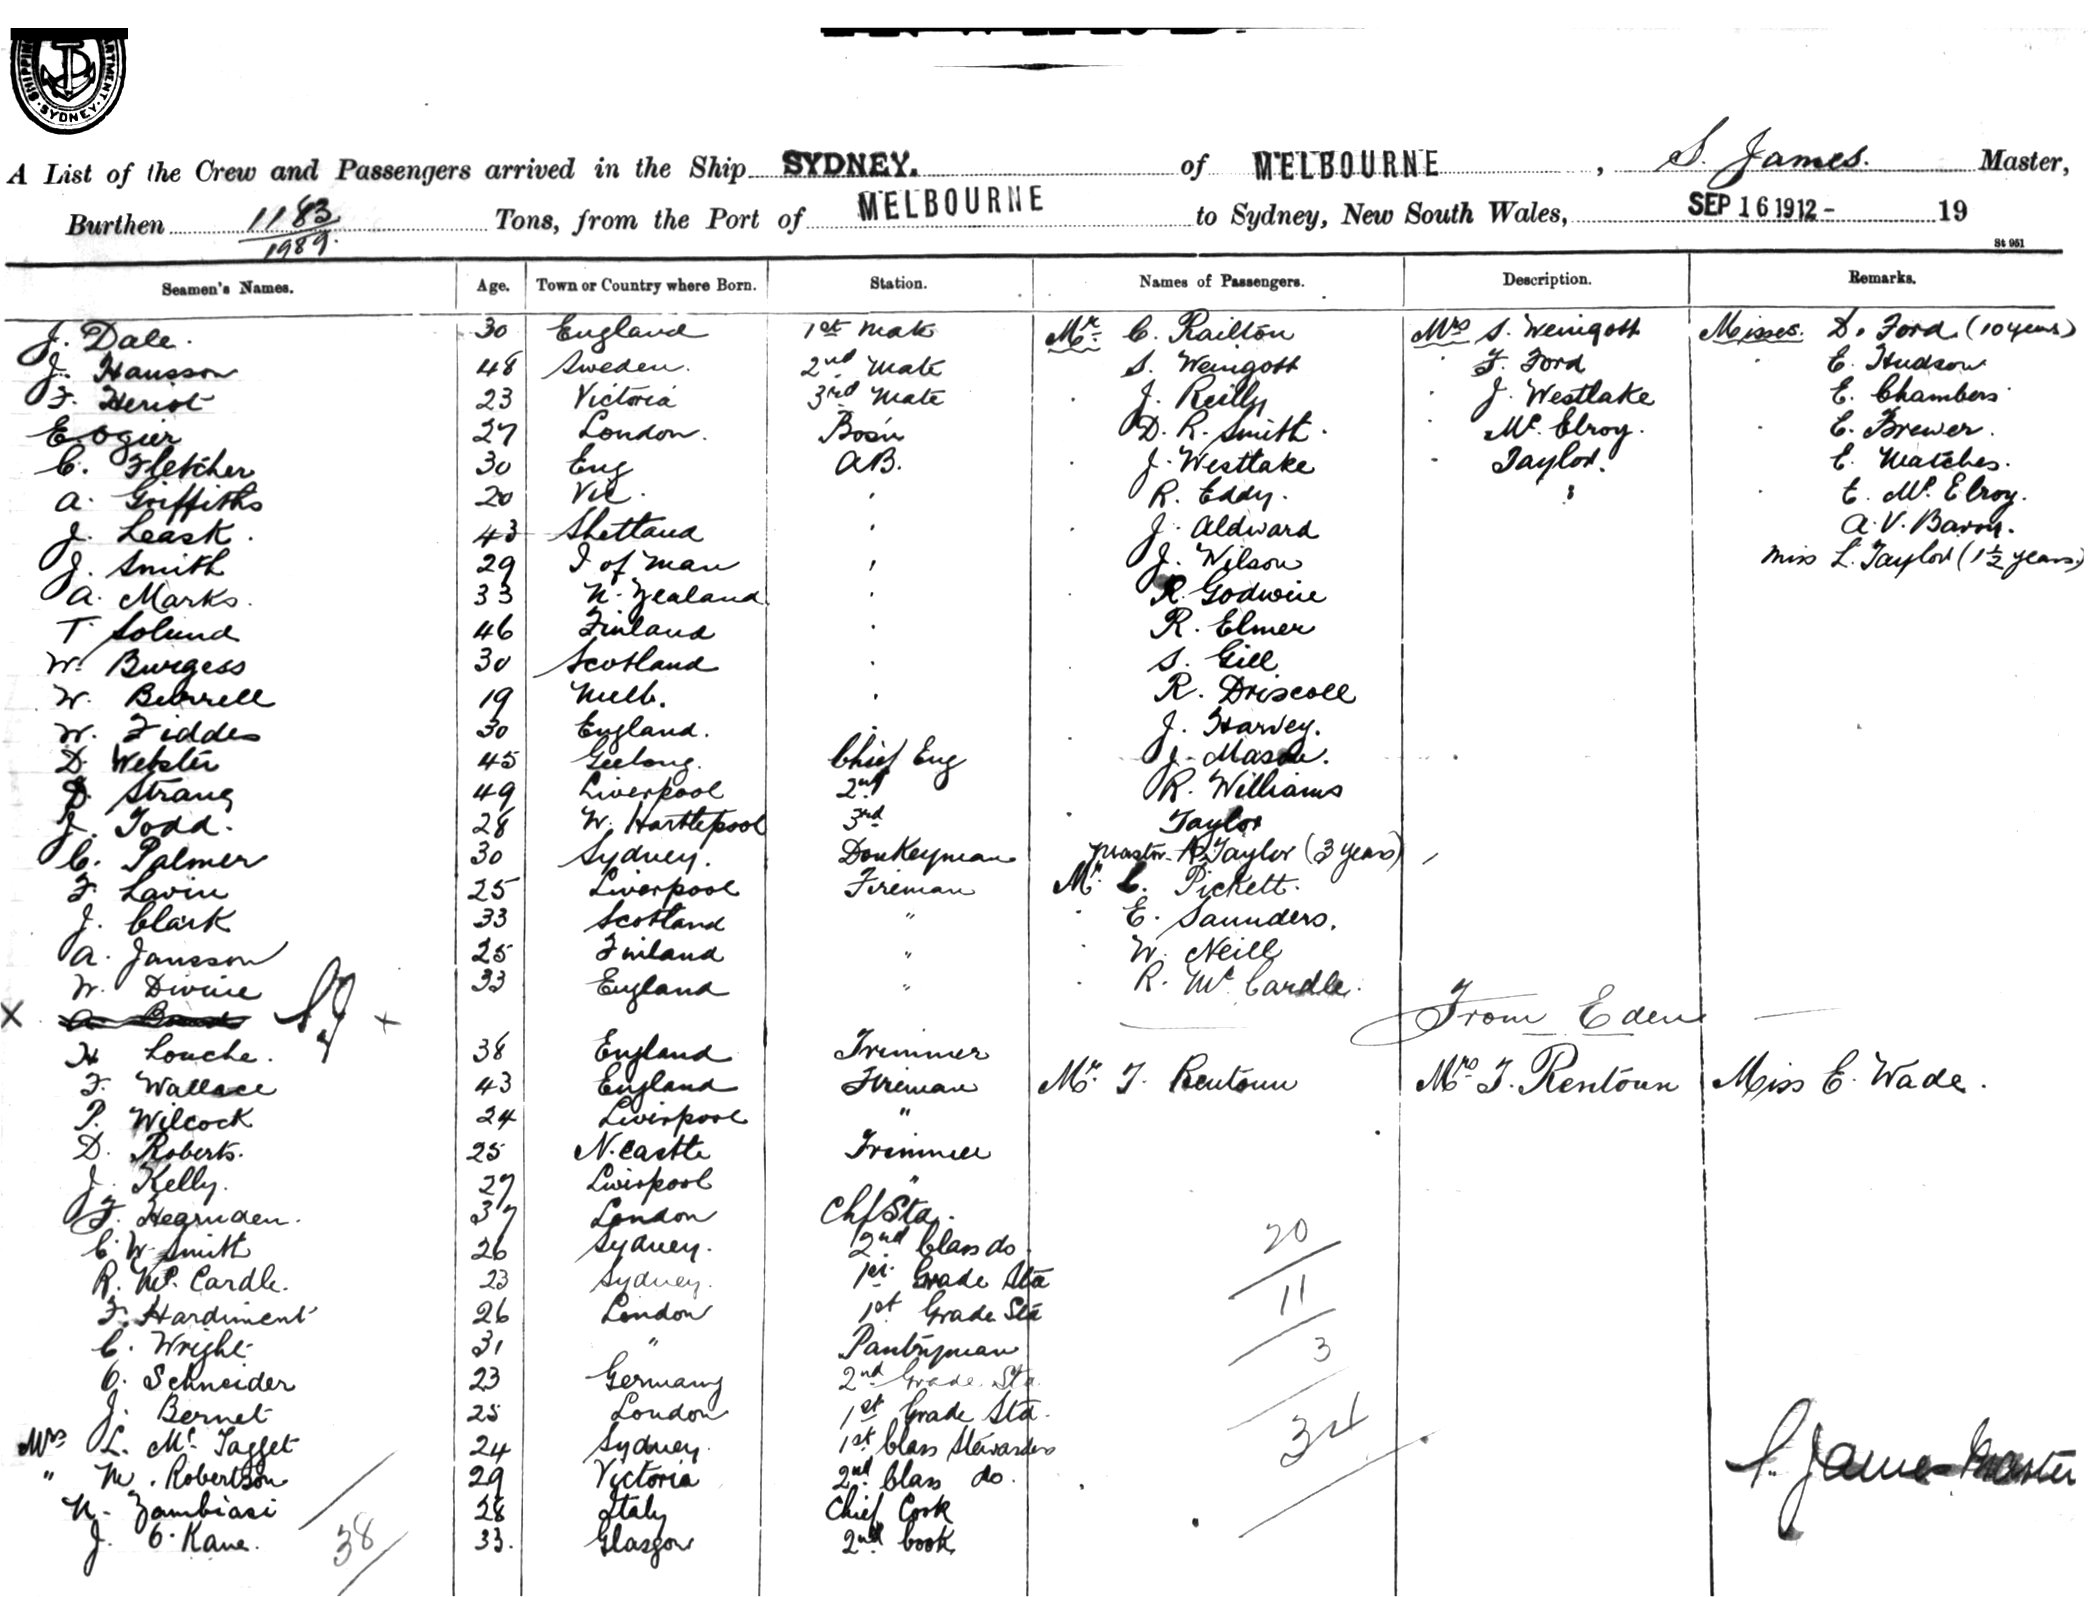 SHIPPIN ARTMENT. SYDNEY.
A List of the Crew and Passengers arrived in the Ship SYDNEY. of MELBOURNE, S. James. Master,
Burthen 1183/1989. Tons, from the Port of MELBOURNE to Sydney, New South Wales, SEP 16 1912 - 19
St 951
Seamen's Names. Age. Town or Country where Born. Station. Names of Passengers. Description. Remarks.
J. Dale. 30 England 1st Mate Mr. C. Railton Mrs S. Weingott Misses. D. Ford (10 years)
J. Hansson 48 Sweden. 2nd Mate S. Weingott F. Ford E. Hudson
F. Heriot 23 Victoria 3rd Mate J. Reilly J. Westlake E. Chambers
E. Ogier 27 London. Bos'n D. R. Smith Mc Elroy. E. Brewer.
C. Fletcher 30 Eng A.B. J. Westlake Taylor. E. Matches.
A. Griffiths 20 Vic. R. Eddy. E. Mc Elroy.
J. Leask. 43 Shetland J. Aldward A. V. Barry.
J. Smith 29 I of Man J. Wilson Miss L. Taylor (1 1/2 years)
A. Marks. 33 N. Zealand R. Godwin
T Solund 46 Finland R. Elmer
W. Burgess 30 Scotland S. Gill
W. Burrell 19 Melb. R. Driscoll
W. Fiddes 30 England. J. Harvey.
D. Webster 45 Geelong. Chief Eng J. Mason.
D. Strang 49 Liverpool 2nd R. Williams
J. Todd. 28 W. Hartlepool 3rd Taylor
C. Palmer 30 Sydney. Donkeyman Master A. Taylor (3 years)
F. Lavin 25 Liverpool Fireman Mr. C. Pickett.
J. Clark 33 Scotland " E. Saunders.
A. Jansson 25 Finland " W. Neill
W. Divine 33 England " R. Mc Cardle.
X SJ + From Eden
H Louche. 38 England Trimmer
F. Wallace 43 England Fireman Mr. T. Rentoun Mrs T. Rentoun Miss E. Wade.
P. Wilcock 24 Liverpool "
D. Roberts. 25 N. Castle Trimmer
J. Kelly. 27 Liverpool "
F. Hearnden. 37 London Chf Std.
C. W. Smith 26 Sydney. 2nd Class do.
R. Mc. Cardle. 23 Sydney. 1st Grade Std
F. Hardiment 26 London 1st Grade Std
C. Wright 31 " Pantryman
O. Schneider 23 Germany 2nd Grade Std
J. Bernet 25 London 1st Grade Std.
Mrs L. Mc Tagget 24 Sydney. 1st Class Stewardess
" M. Robertson 29 Victoria 2nd Class do.
N. Zambiasi 28 Italy Chief Cook
J. O. Kane. 33. Glasgow 2nd Cook
38
20
11
3
34
S. James Master